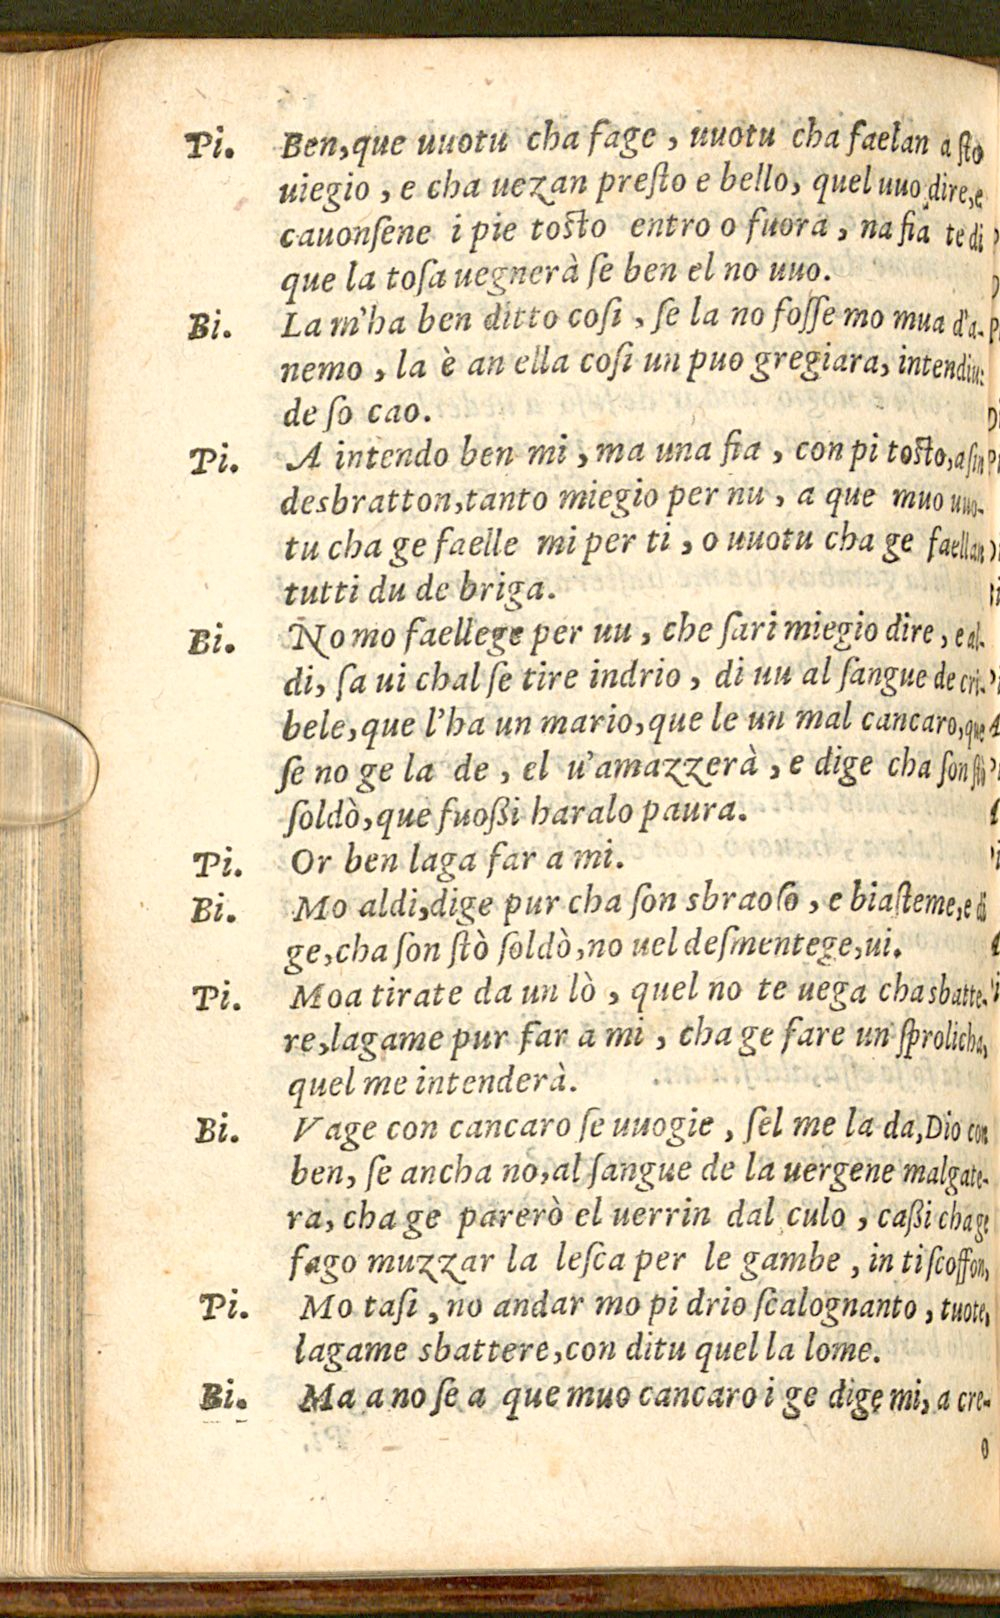 Pi. Ben,que uuotu cha fage , uuotu cha faelan a ſto
uiegio , e cha uezan preſto e bello, quel uuo dire,e
cauonſene i pie toſto entro o fuora , na fia te di
que la toſa uegnerà ſe ben el no uuo.
Bi. La m'ha ben ditto coſi , ſe la no foſſe mo mua d'a-
nemo , la è an ella coſi un puo gregiara, intendiu:
de ſo cao.
Pi. A intendo ben mi , ma una fia , con pi toſto,a ſin
desbratton,tanto miegio per nu , a que muo uuo-
tu cha ge faelle mi per ti , o uuotu cha ge faellan
tutti du de briga.
Bi. No mo faellege per uu , che ſari miegio dire , e al-
di, ſa ui chal ſe tire indrio , di uu al ſangue de cri-
bele,que l'ha un mario,que le un mal cancaro,que
ſe no ge la de , el u'amazzerà , e dige cha ſon ſtò
ſoldò,que fuoßi haralo paura.
Pi. Or ben laga far a mi.
Bi. Mo aldi,dige pur cha ſon sbraoſo , e biaſteme,e di
ge,cha ſon ſtò ſoldò,no uel deſmentege,ui.
Pi. Moa tirate da un lò , quel no te uega cha sbatte-
re,lagame pur far a mi , cha ge fare un ſprolicha,
quel me intenderà.
Bi. Vage con cancaro ſe uuogie , ſel me la da,Dio con
ben, ſe ancha no,al ſangue de la uergene malgate-
ra, cha ge parerò el uerrin dal culo , caßi cha ge
fago muzzar la leſca per le gambe , in ti ſcoffon,
Pi. Mo taſi , no andar mo pi drio ſcalognanto , tuote,
lagame sbattere,con ditu quel la lome.
Bi. Ma a no ſe a que muo cancaro i ge dige mi, a cre-